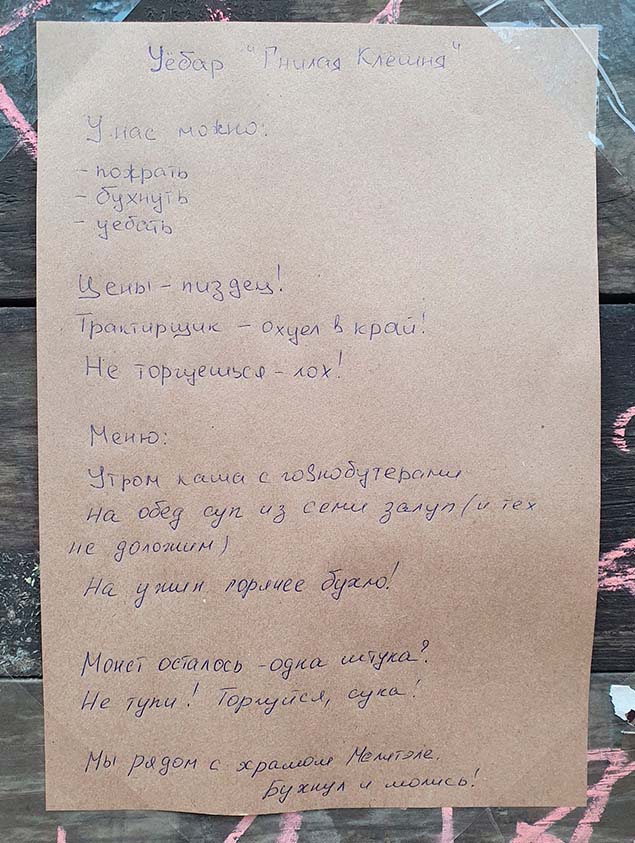 Уёбар "Гнилая Клешня"
У нас можно:
- пожрать
- бухнуть
- уебать
Цены - пиздец!
Трактирщик - охуел в край!
Не торгуешься - лох!
Меню:
Утром каша с говнобутерами
На обед суп из семи залуп (и тех
не доложим)
На ужин горячее бухло!
Монет осталось - одна штука?
Не тупи! Торгуйся, сука!
Мы рядом с храмом Мелитэле.
Бухнул и молись!